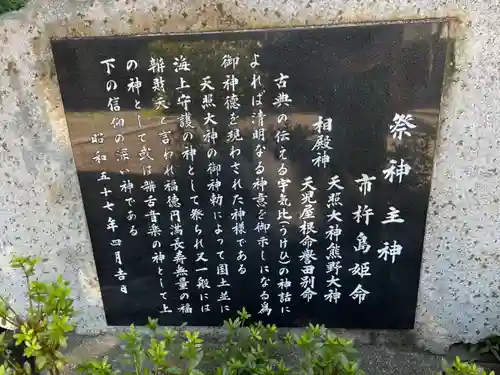 祭神主神
市杵島姫命
相殿神 天照大神熊野大神
天児屋根命誉田別命
古典の伝える宇気比(うけひ)の神話に
よれば清明なる神意を御示しになる為
御神徳を現わされた神様である
天照大神の御神勅によって国土並に
海上守護の神として祭られ又一般には
辨戝天と言われ福徳円満長寿無量の福
の神として或は辯舌音楽の神として上
下の信仰の深い神である
昭和五十七年四月吉日